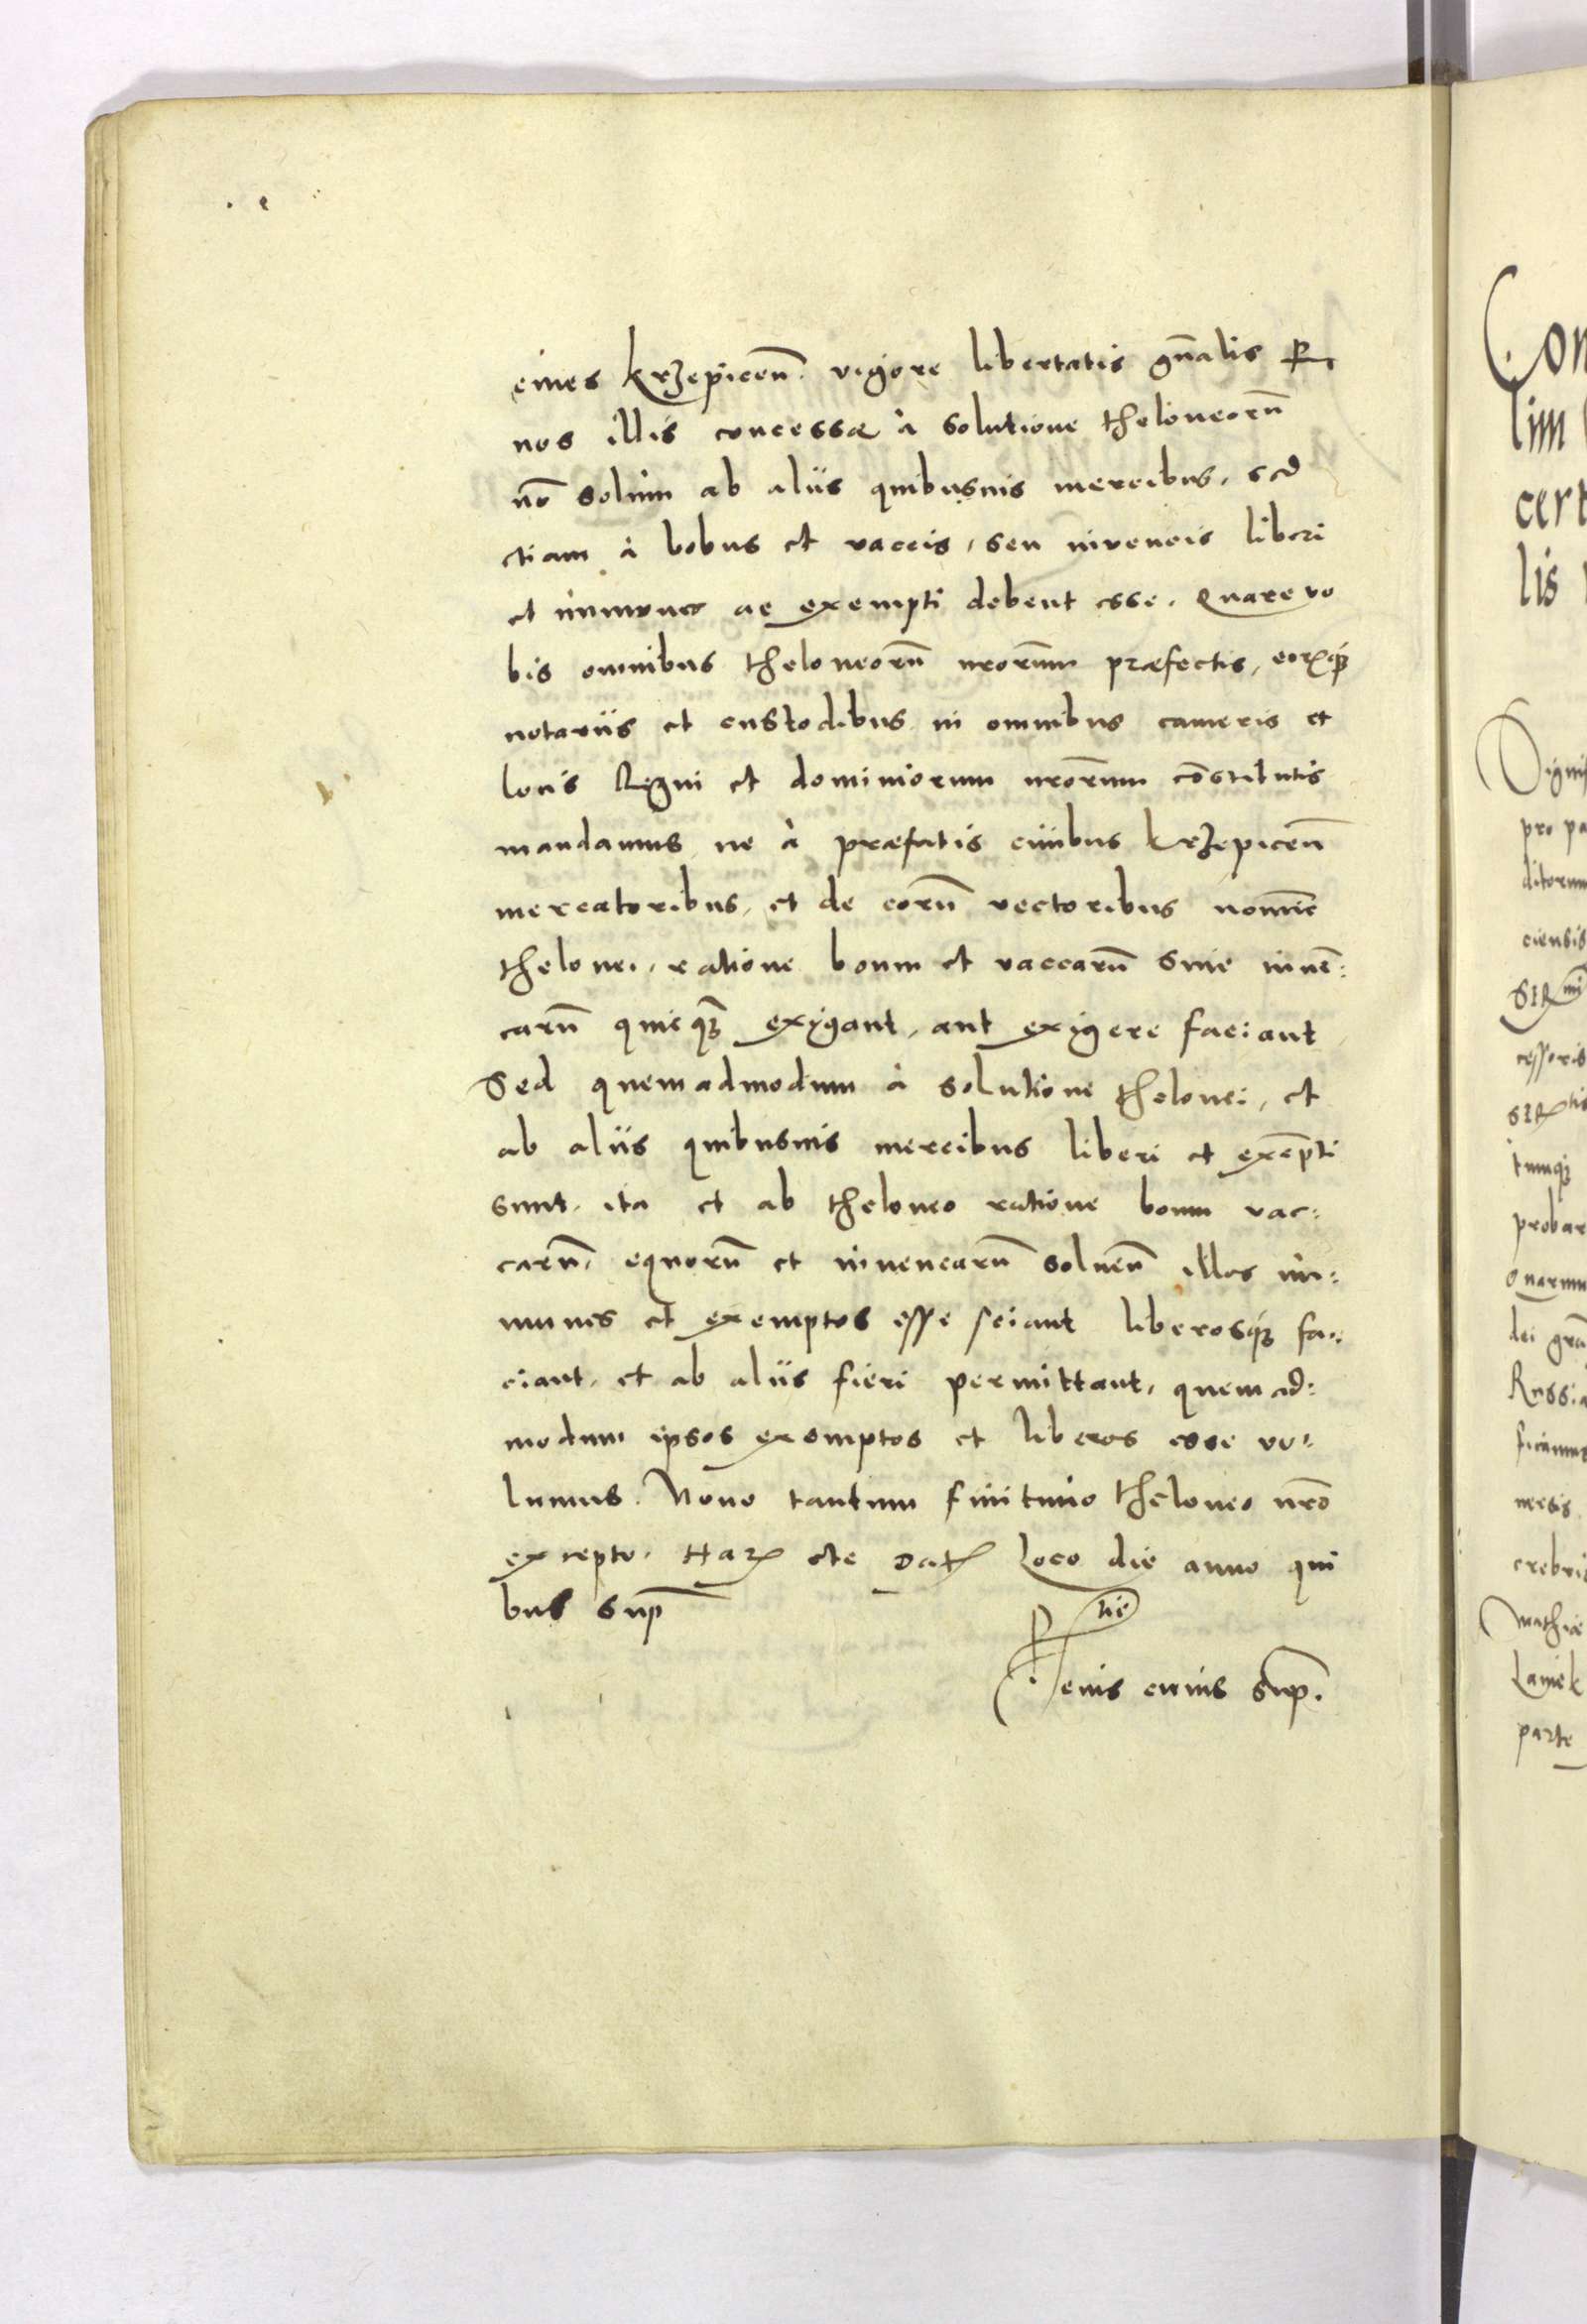 ciues krzepicen̄. vigore libertatis gn̄alis P
nos illis concessæ à solutione theloneorū
nō solùm ab alijs quibusuis mercibus, sed
etiam à bobus et vaccis, seu iuuencis liberi
et immunes ac exempti debent esse. Quare vo
bis omnibus theloneorū nrōrum præfectis, eorꝝqꝫ
notarijs et custodibus in omnibus cameris et
locis Regni et dominiorum nrōrum cōnstitutis
mandamus, ne à præfatis ciuibus krzepicen̄
mercatoribus, et de eorū vectoribus nomīe
thelonei, ratione boum et vaccarū siue iuuē:
carū quicqꝫ exigant, aut exigere faciant
Sed quemadmodum à solutione thelonei, et
ab alijs quibusuis mercibus liberi et exēpti
sunt, ita et ab theloneo ratione boum vac:
carū, equorū et iuuencarū soluen̄ illos im:
munes et exemptos esse sciant liberosqꝫ fa:
ciant, et ab alijs fieri permittant, quemad:
modum ipsos exemptos et liberos esse vo:
lumus. Nouo tantum finitimo theloneo nrō
excepto. Harꝝ etc Datꝝ Loco die anno qui
bus sup
R tio
eius cuius sup.
Con
lim
cert
lis
Digni
pro pa
ditorum
ciensis
SIRmi
cessoris
SIRtis
tumqꝫ
probar
onarum
dei gra
Russia
nersis
crebris
Mathiæ
parte